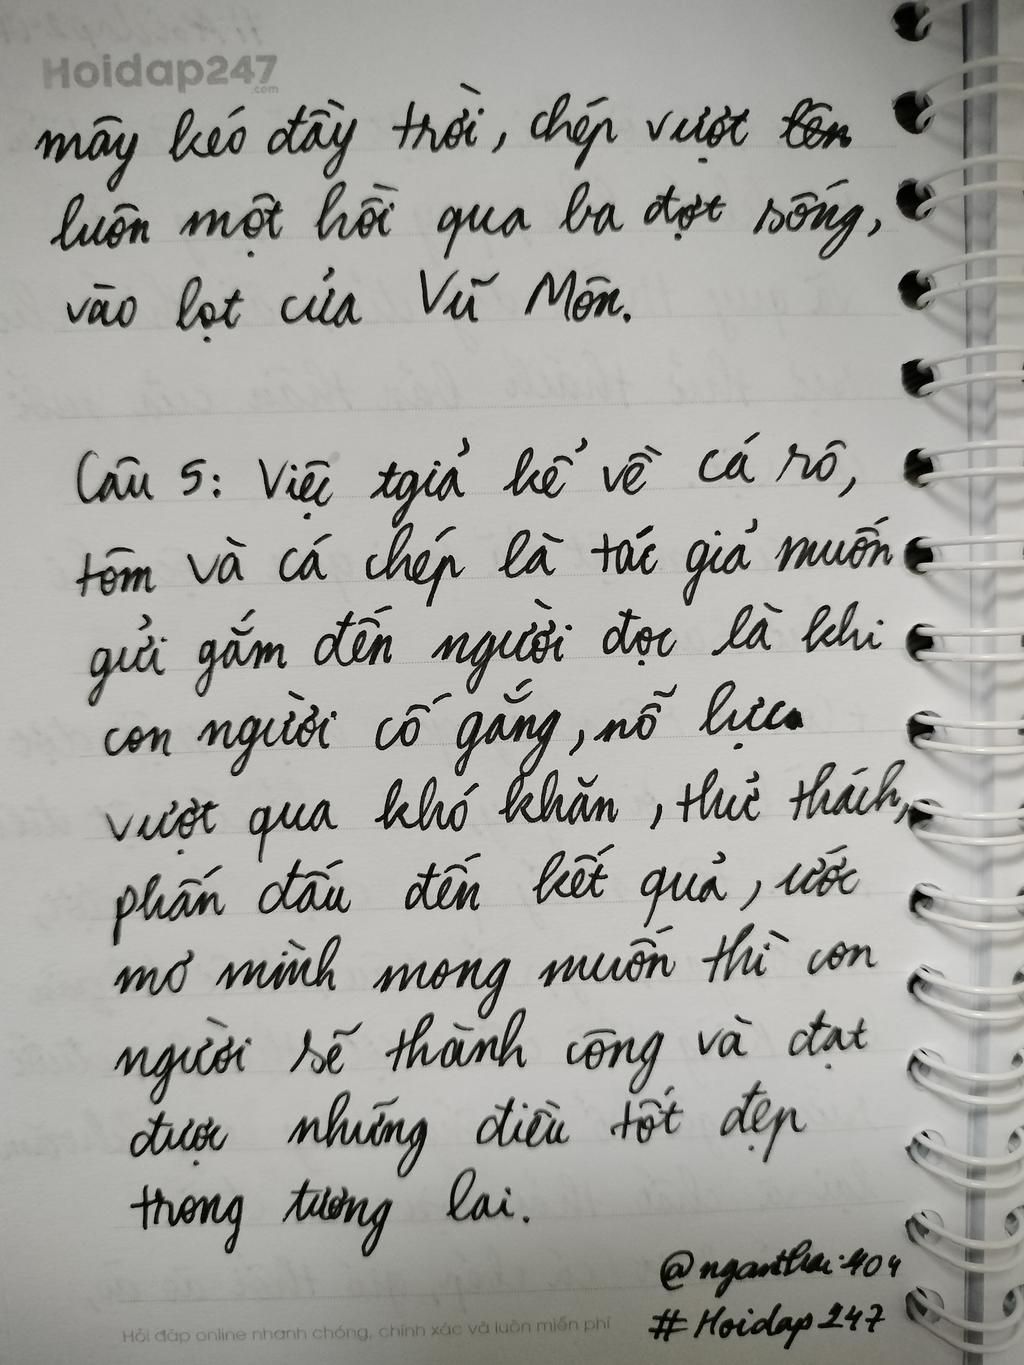 Hoidap247
.com
mây kéo đầy trời, chép vượt lên
luôn một hồi qua ba đợt sóng,
vào lọt cửa Vũ Môn.
Câu 5: Việc tgiả kể về cá rô,
tôm và cá chép là tác giả muốn
gửi gắm đến người đọc là khi
con người cố gắng, nỗ lực
vượt qua khó khăn, thử thách,
phấn đấu đến kết quả, ước
mơ mình mong muốn thì con
người sẽ thành công và đạt
được những điều tốt đẹp
trong tương lai.
#Hoidap247
Hỏi đáp online nhanh chóng, chính xác và luôn miễn phí